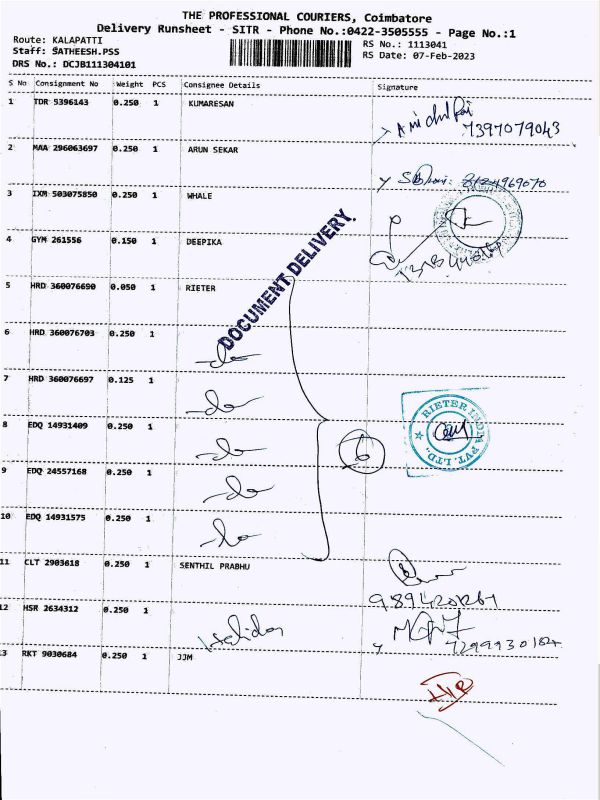 THE PROFESSIONAL COURIERS, Coimbatore
Delivery Runsheet - SITR - Phone No.:0422-3505555 - Page No.:1
Route: KALAPATTI
Staff: SATHEESH.PSS
DRS No.: DCJB111304101
RS No.: 1113041
RS Date: 07-Feb-2023
S No Consignment No Weight PCS Consignee Details Signature
1 TDR 9396143 0.250 1 KUMARESAN
7397079043
2 MAA 296063697 0.250 1 ARUN SEKAR
3 IXM 503075850 0.250 1 WHALE
4 GYM 261556 0.150 1 DEEPIKA
DOCUMENT DELIVERY
5 HRD 360076690 0.050 1 RIETER
6 HRD 360076703 0.250 1 -do-
7 HRD 360076697 0.125 1 -do-
8 EDQ 14931409 0.250 1 -do-
9 EDQ 24557168 0.250 1 -do-
10 EDQ 14931575 0.250 1 -do-
6
RIETER INDIA PVT. LTD.,
11 CLT 2903618 0.250 1 SENTHIL PRABHU
12 HSR 2634312 0.250 1
13 RKT 9030684 0.250 1 JJM